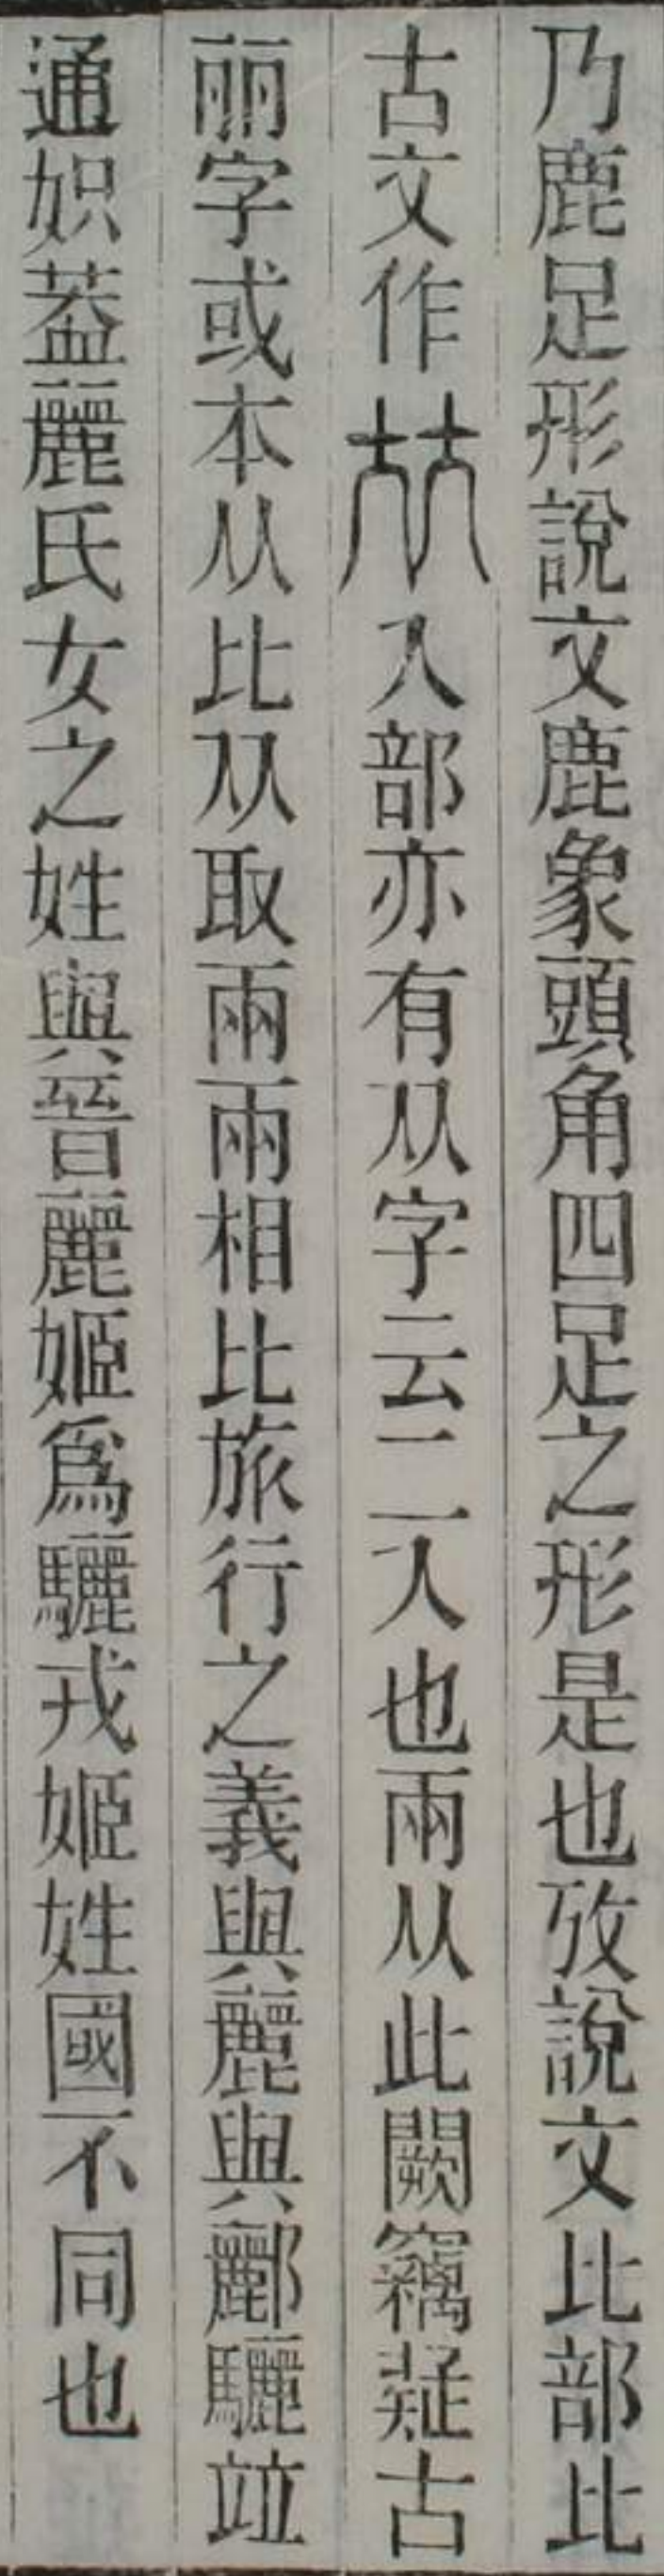 乃鹿足形說文鹿象頭角四足之形是也攷說文比部比
古文作𣬅入部亦有从字云二人也兩从此闕竊疑古
丽字或本从比从取兩兩相比旅行之義與麗與酈驪竝
通妶葢麗氏女之姓與晉麗姬爲驪戎姬姓國不同也